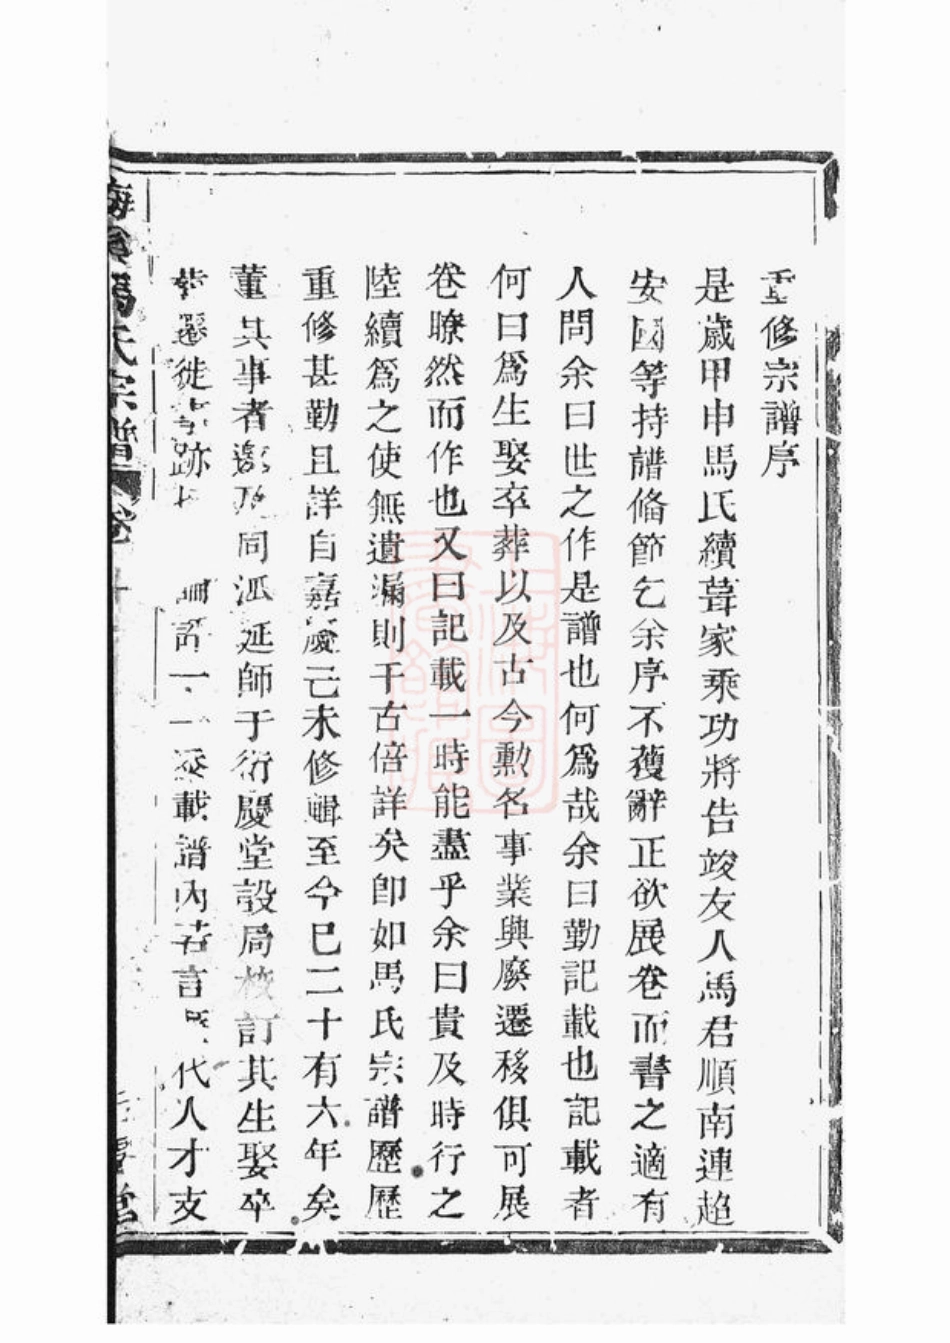 重修宗譜序
是歲甲申馬氏續葺家乘功將告竣友人馬君順南連趙
安國等持譜偹節乞余序不獲辭正欲展卷而書之適有
人問余曰世之作是譜也何爲哉余曰勤記載也記載者
何曰爲生娶卒葬以及古今勲名事業興廢遷移俱可展
卷暸然而作也又曰記載一時能盡乎余曰貴及時行之
陸續爲之使無遺漏則千古倍詳矣卽如馬氏宗譜歷歷
重修甚勤且詳自嘉慶己未修輯至今巳二十有六年矣
董其事者邀及同派延師于衍慶堂設局校訂其生娶卒
葬遷徙 跡 一一 載譜內若言 代人才支
馬氏宗譜 卷